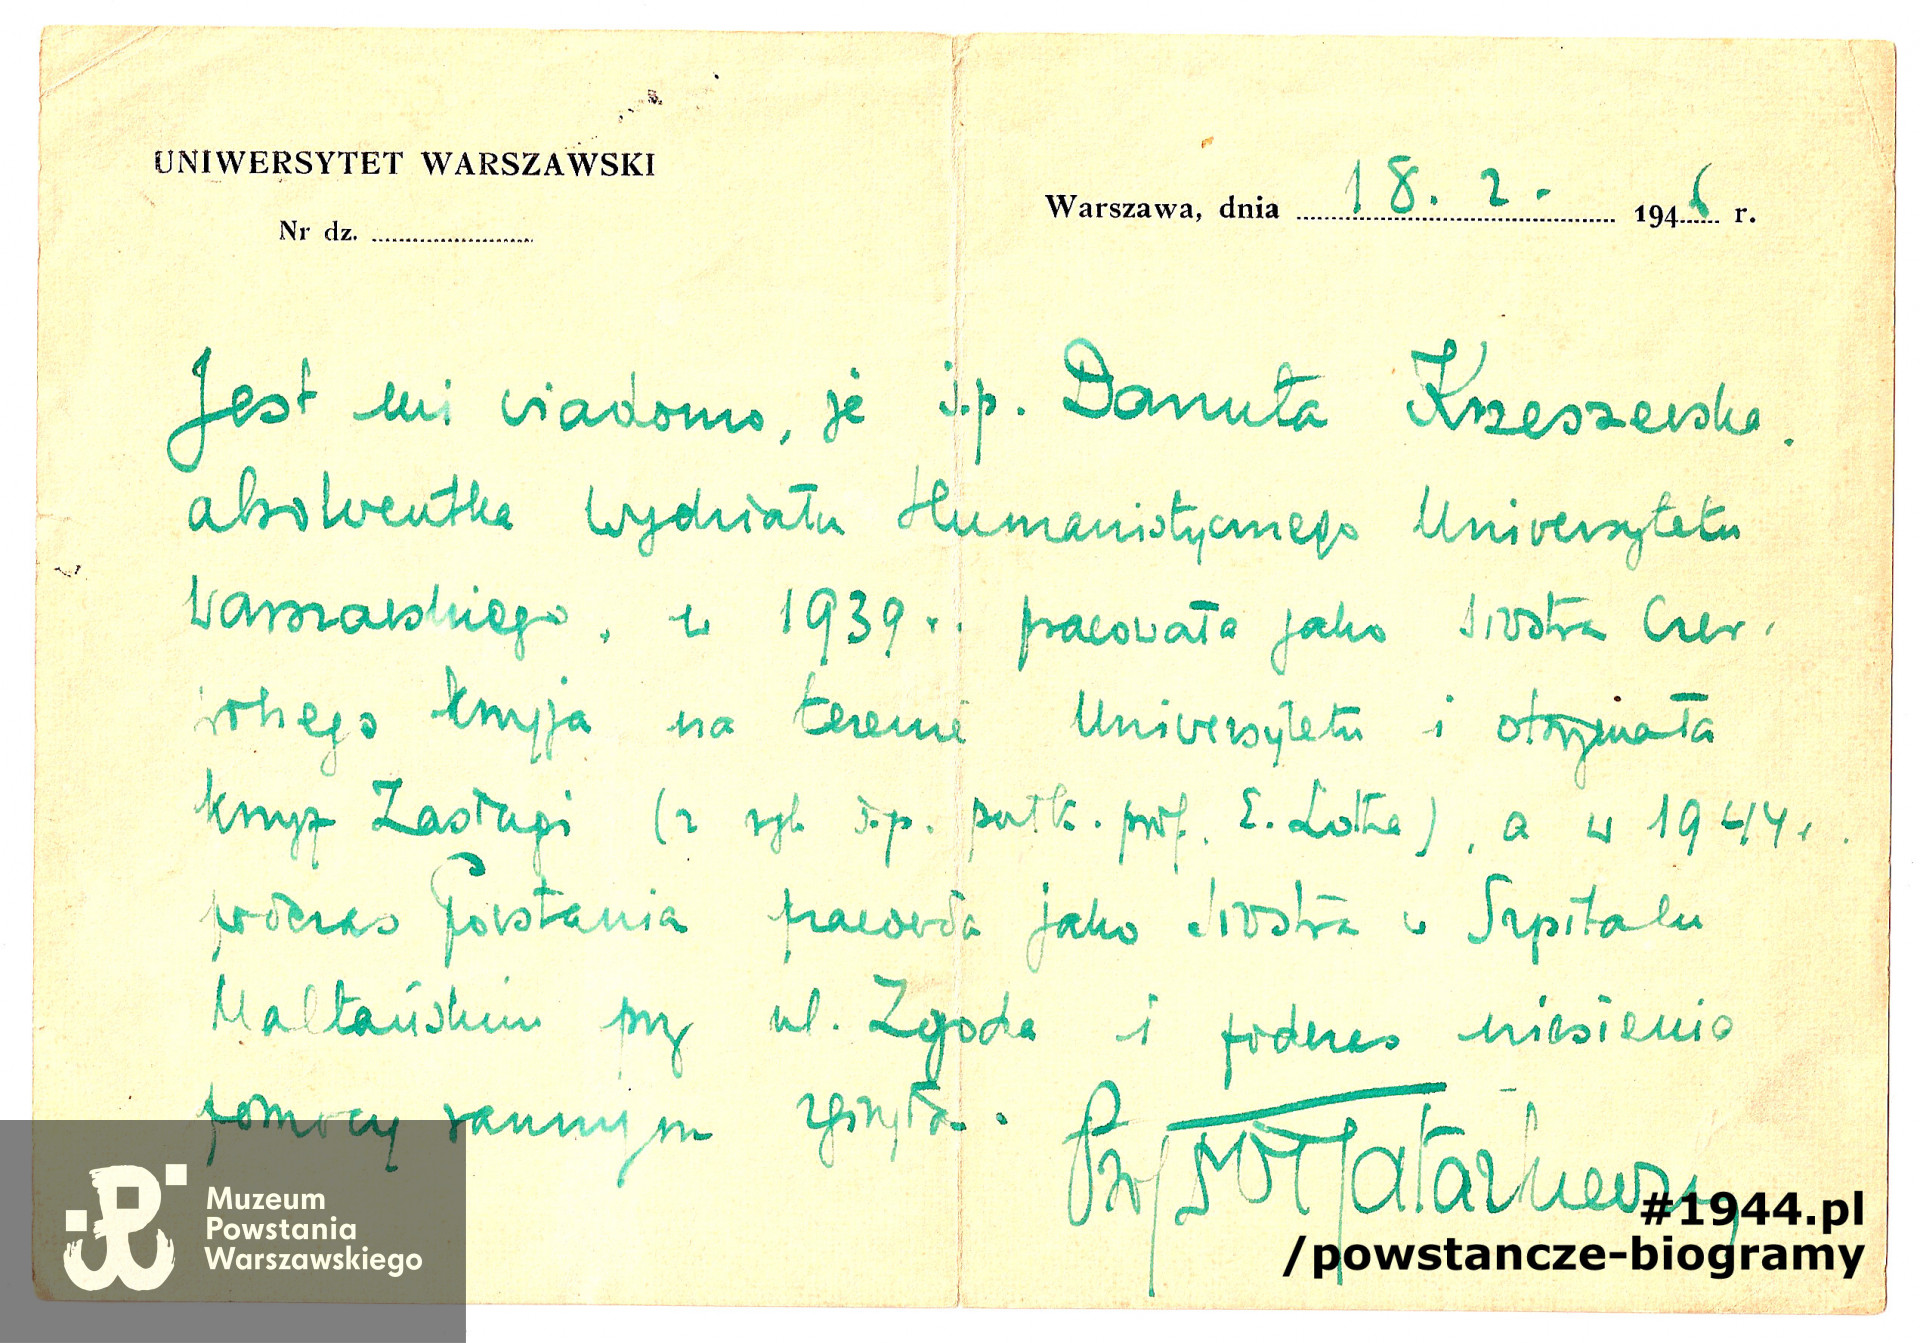 UNIWERSYTET WARSZAWSKI
Nr dz. ....................
Warszawa, dnia 18. 2. 1946 r.
Jest mi wiadomo, że ś.p. Danuta Krzeszewska.
absolwentka Wydziału Humanistycznego Uniwersytetu
Warszawskiego, w 1939 r. pracowała jako siostra Czer-
wonego Krzyża na terenie Uniwersytetu i otrzymała
krzyż Zasługi (z rąk ś.p. pułk. prof. E. Lotha), a w 1944 r.
podczas Powstania pracowała jako siostra w Szpitalu
Maltańskim przy ul. Zgoda i podczas niesienia
pomocy rannym zginęła.
Prof Wł Tatarkiewicz
Muzeum
Powstania
Warszawskiego
#1944.pl
/powstancze-biogramy